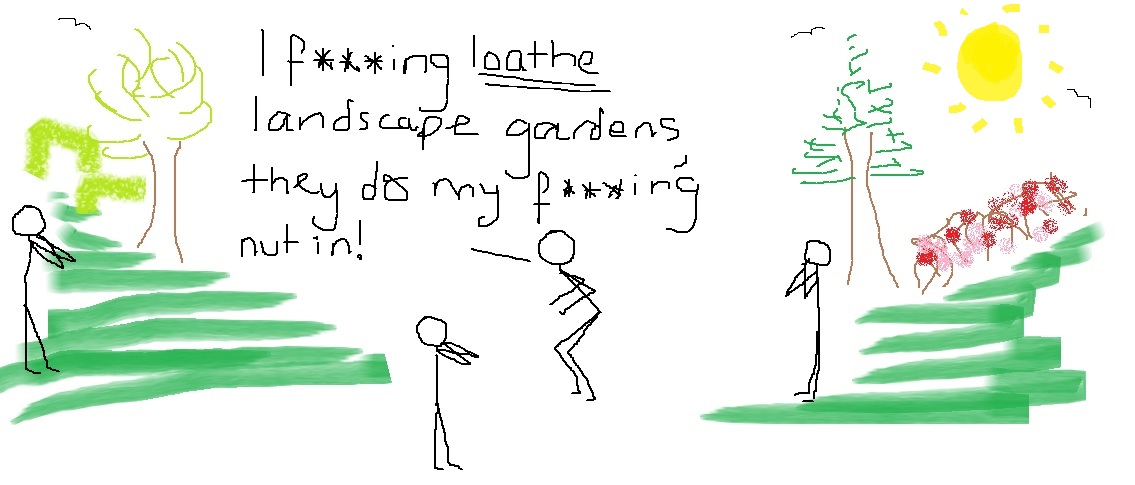 I f***ing loathe
landscape gardens
they do my f***ing
nut in!